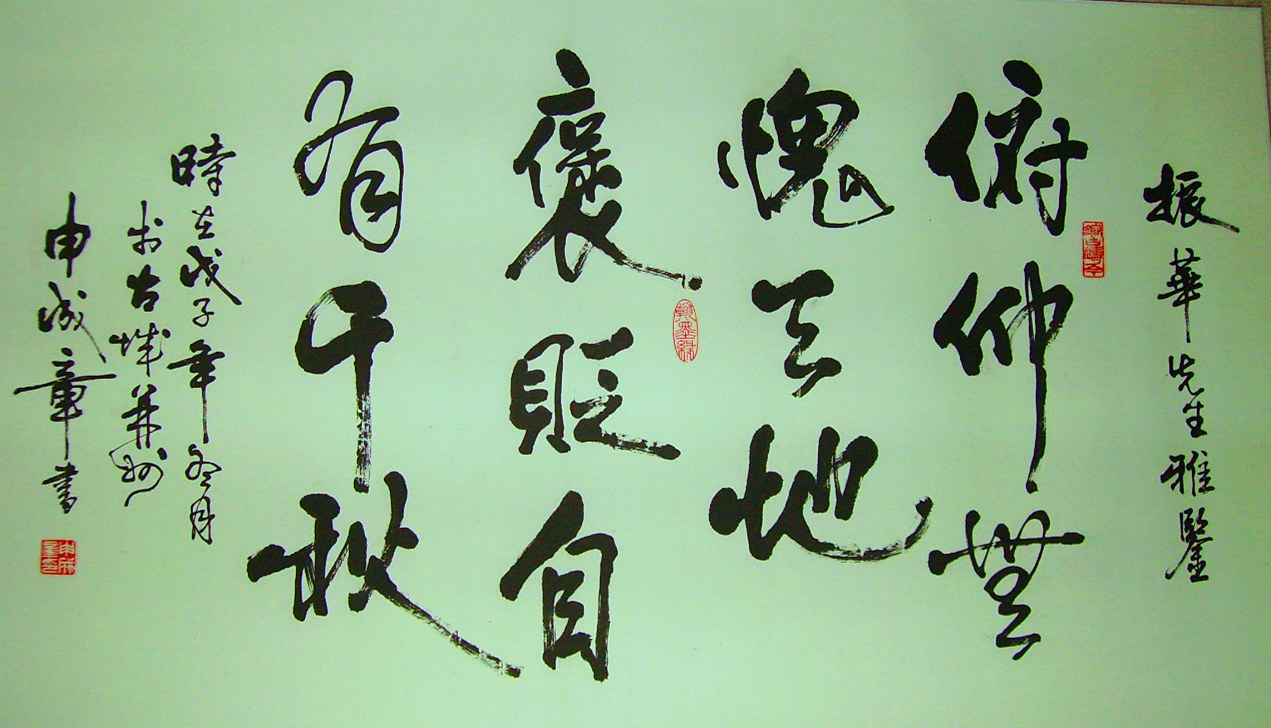 振華先生雅鑒
俯仰無
愧天地
褒貶自
有千秋
時在戊子年冬月
於古城并州
申成章書